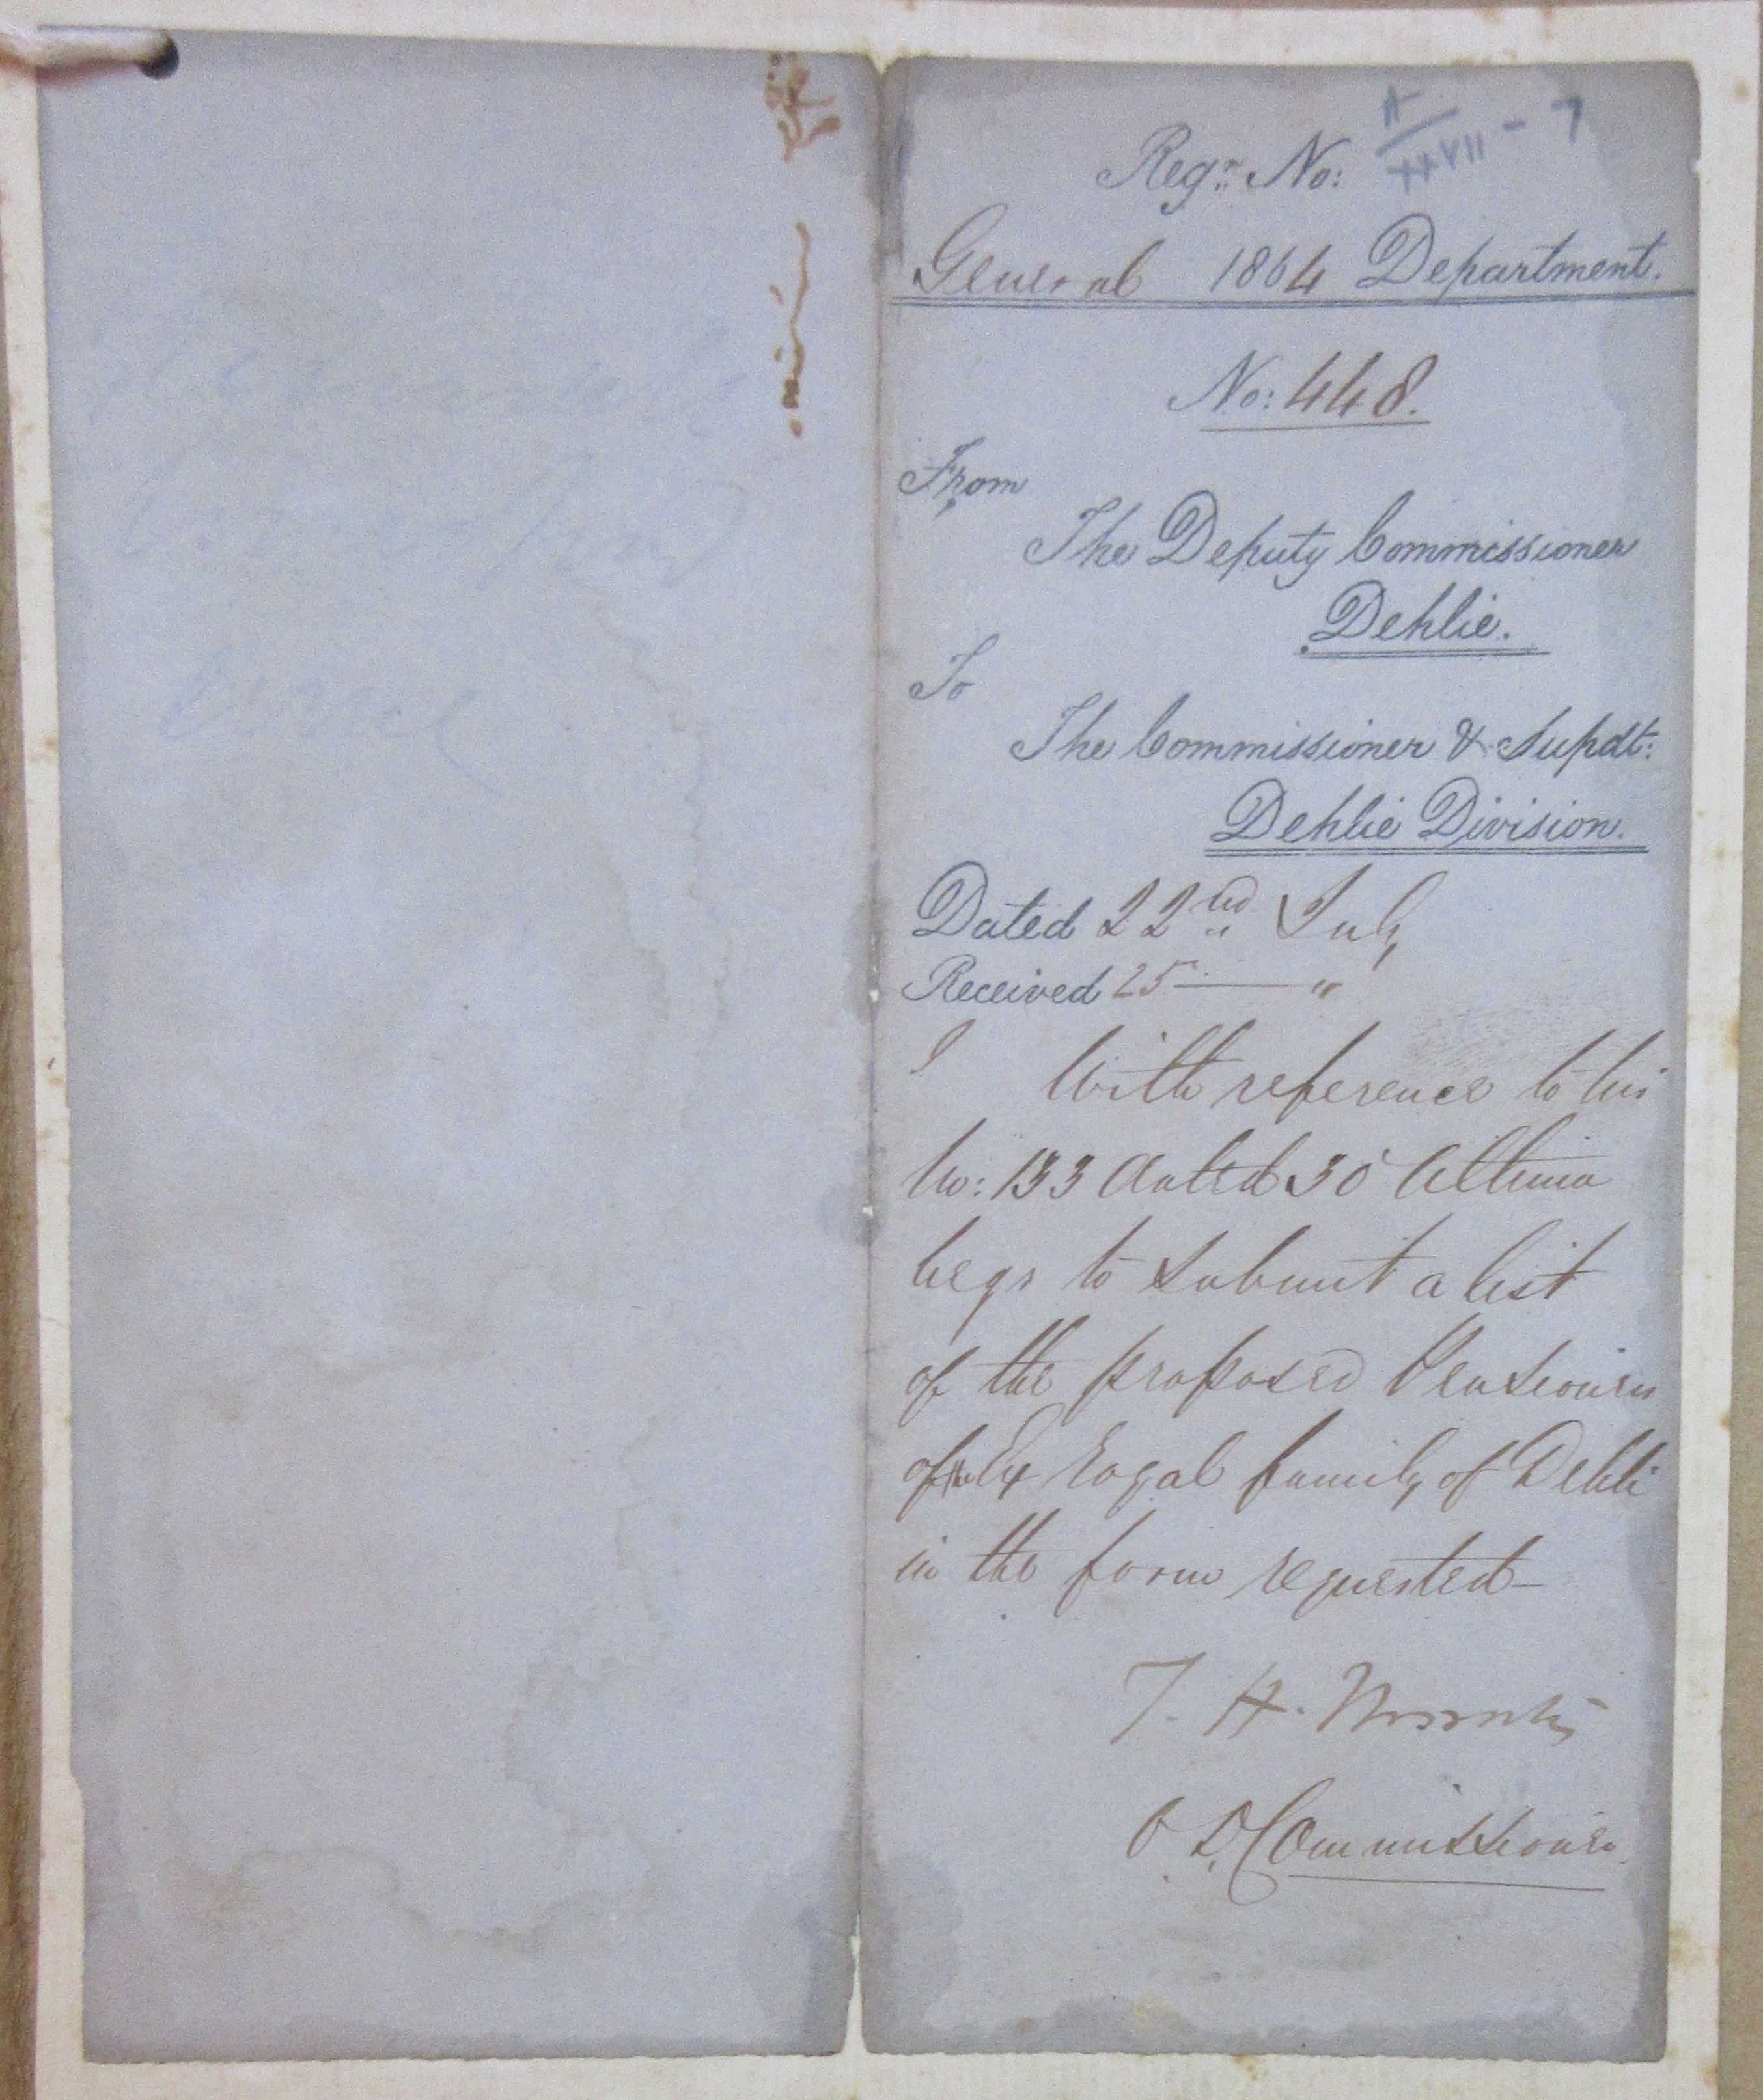 Regr. No:
A
XXVII - 7
General 1864 Department.
No: 448.
From
The Deputy Commissioner
Dehlie.
To
The Commissioner & Supdt:
Dehlie Division.
Dated 22nd July
Received 25 — "
With reference to his
No: 133 dated 30 Ultimo
begs to submit a list
of the proposed Pensioners
of the Ex Royal family of Dehli
in the form requested —
T. H.
O D. Commissioner